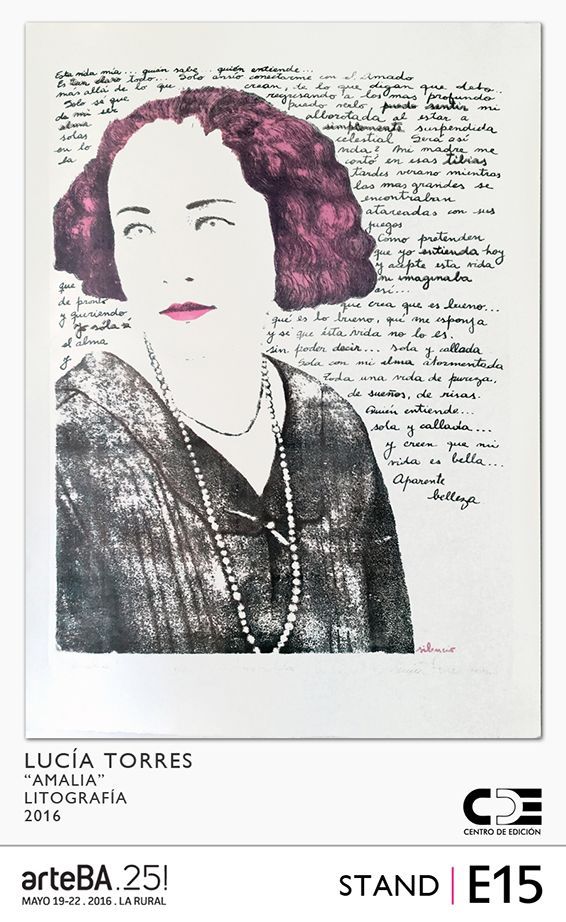 Esta vida mía... quién sabe.. quién entiende...
Es tan claro todo... Solo ansío conectarme con el amado
más allá de lo que crean, de lo que digan que debo..
Solo sé que regresando a lo más profundo
de mi ser puedo verlo, puedo sentir mi
alma alborotada al estar a
solas simplemente suspendida
en lo celestial Será así
la vida? Mi madre me
cortó en esas tibias
tardes verano mientras
las más grandes se
encontraban
atareadas con sus
juegos
Como pretenden
que yo entienda hoy
y acepte esta vida
ni imaginaba
que así...
de pronto que crea que es bueno...
y queriendo qué es lo bueno, qué me esponja
yo sola si y si que ésta vida no lo es.
el alma sin poder decir... sola y callada
y Sola con mi alma atormentada
Toda una vida de pureza,
de sueños, de risas.
Quién entiende...
sola y callada...
y creen que mi
vida es bella...
Aparente
belleza
silencio
LUCÍA TORRES
“AMALIA”
LITOGRAFÍA
2016
CDE
CENTRO DE EDICIÓN
arteBA.25!
MAYO 19-22 . 2016 . LA RURAL
STAND | E15